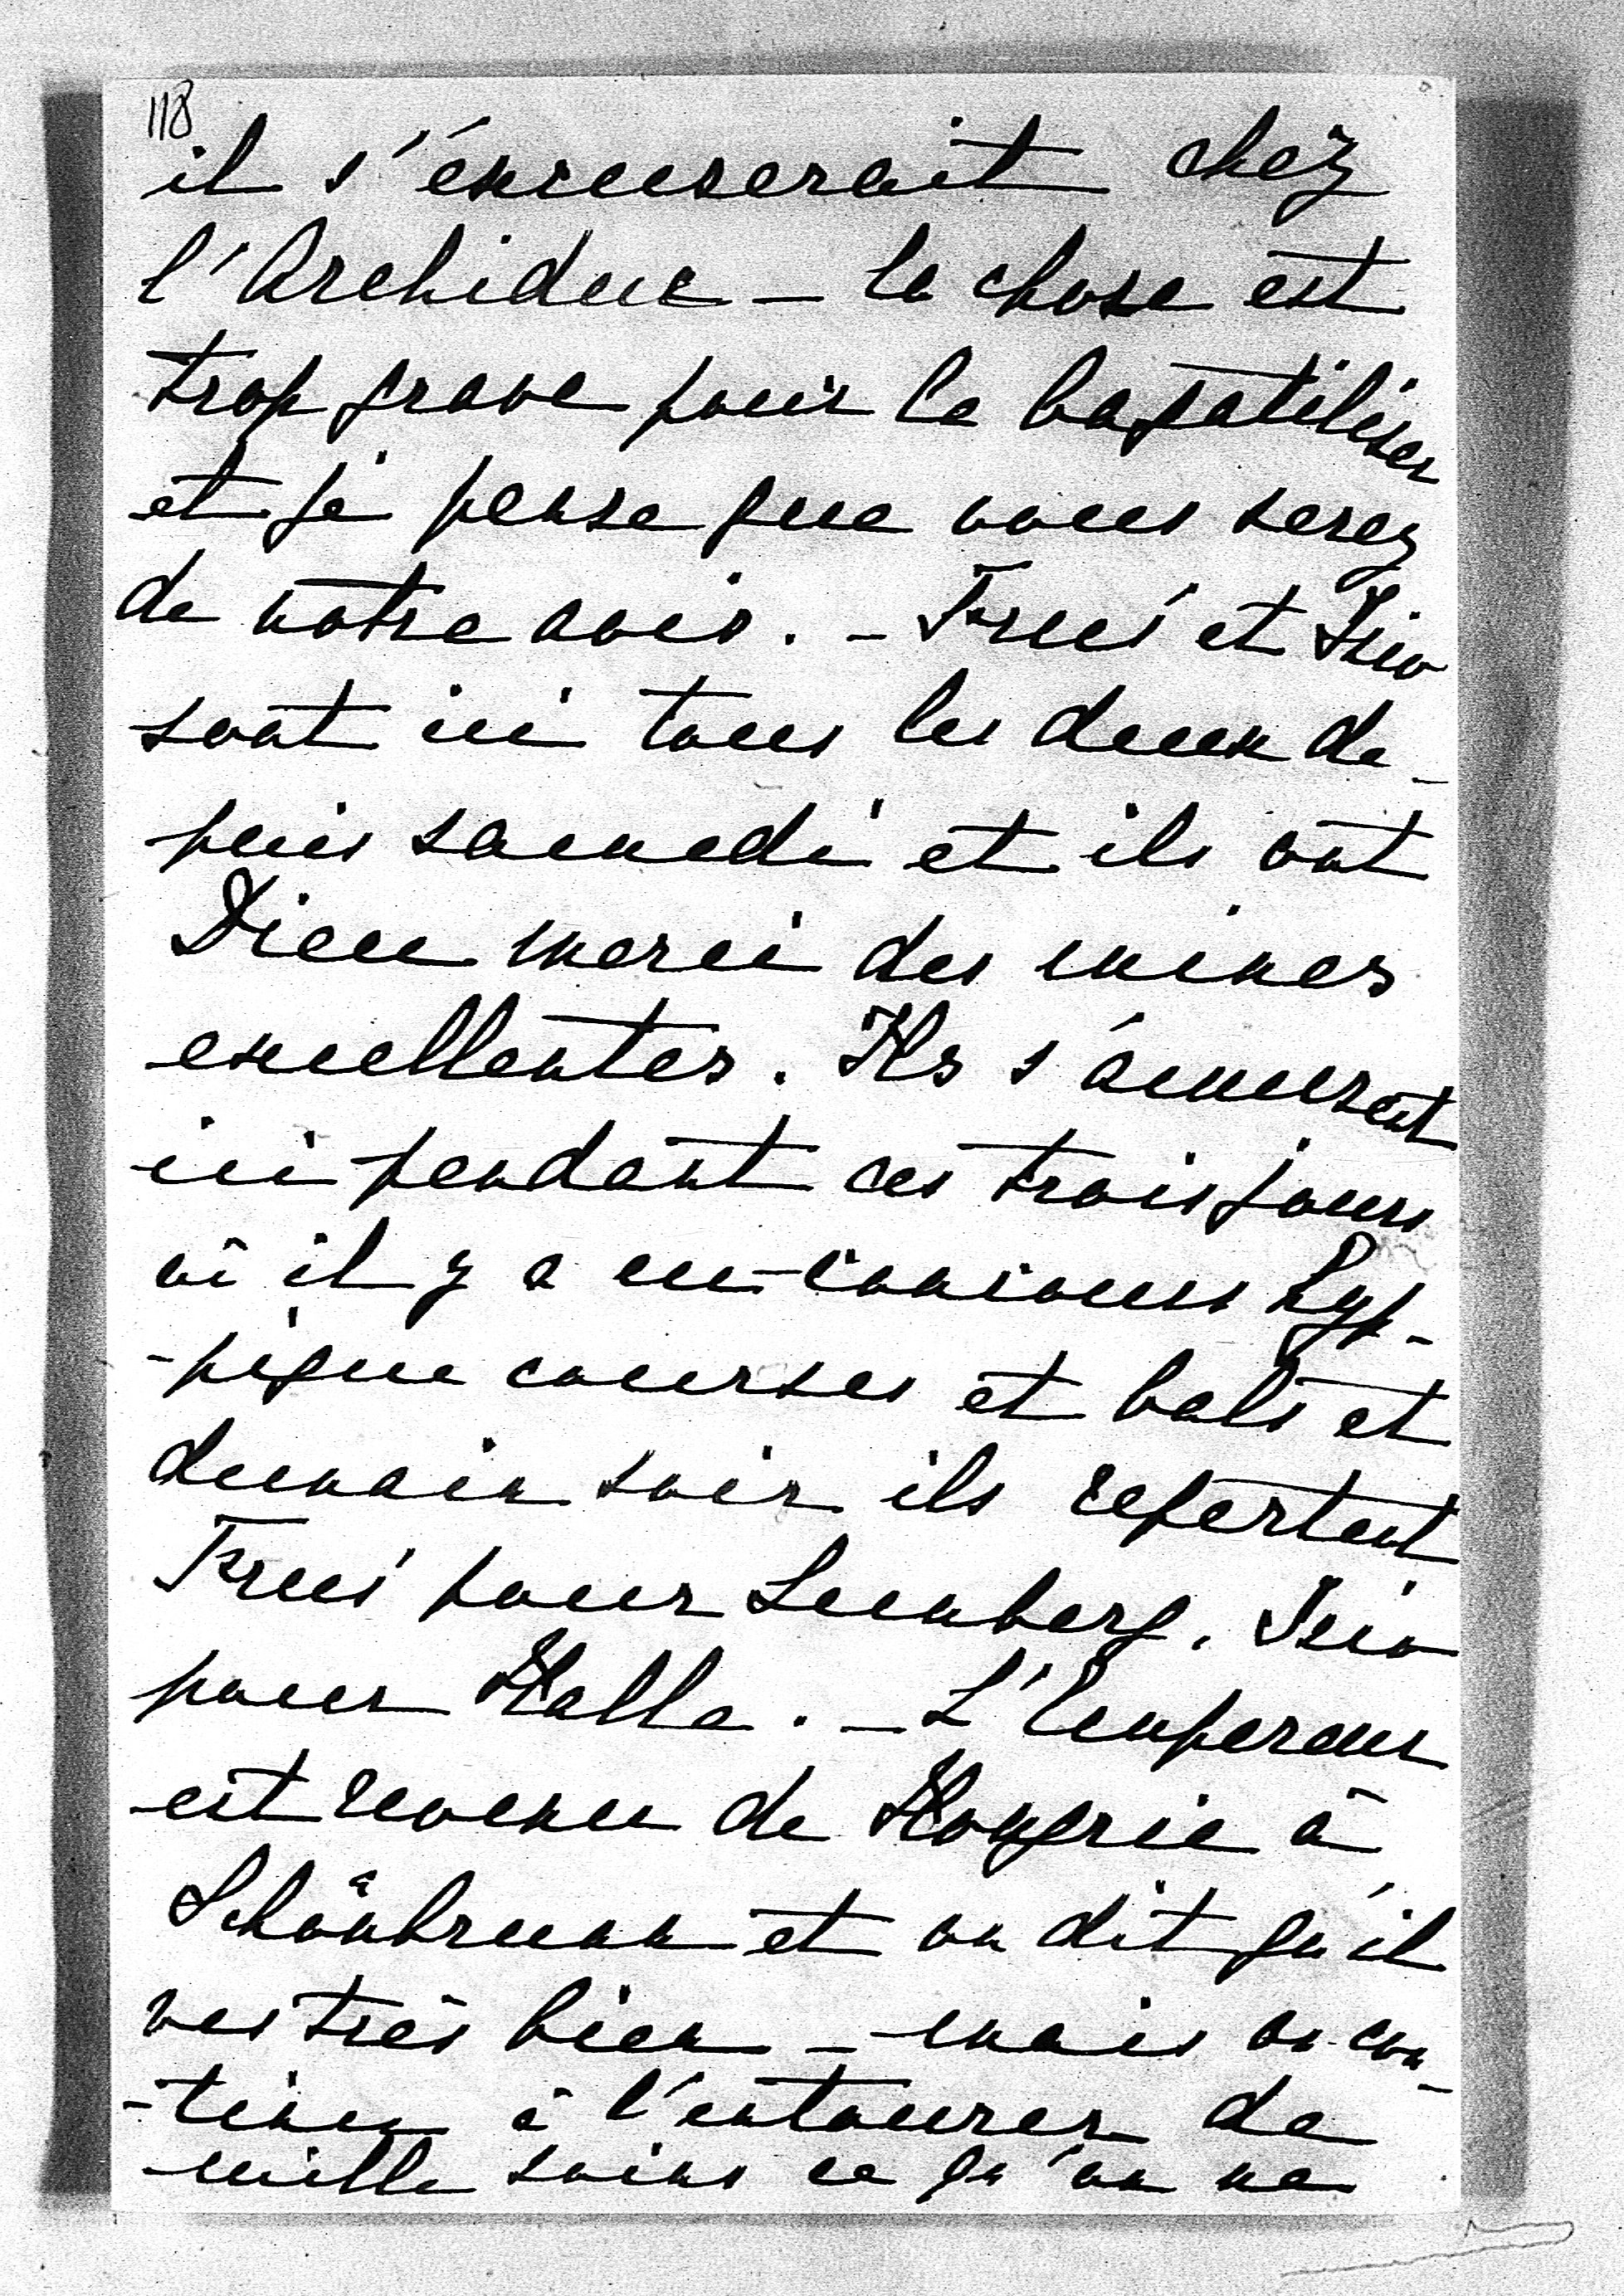 118
il s'éxcuserait chez
l'Archiduc – la chose est
trop grave pour la bagatéliser
et je pense que vous serez
de notre avis. – Fruci et Isio
sont ici tous les deux de-
puis samedi et ils ont
Dieu merci des mines
excellentes. Ils s'amusent
ici pendant ces trois jours
où il y a eu concours hyp-
-pique courses et bals et
demain soir ils repartent
Fruci pour Lemberg. Isio
pour Halle. – L'Empereur
est revenu de Hongrie à
Schönbrunn et on dit qu'il
va très bien – mais on con-
-tinue à l'entourer de
mille soins ce qu'on ne